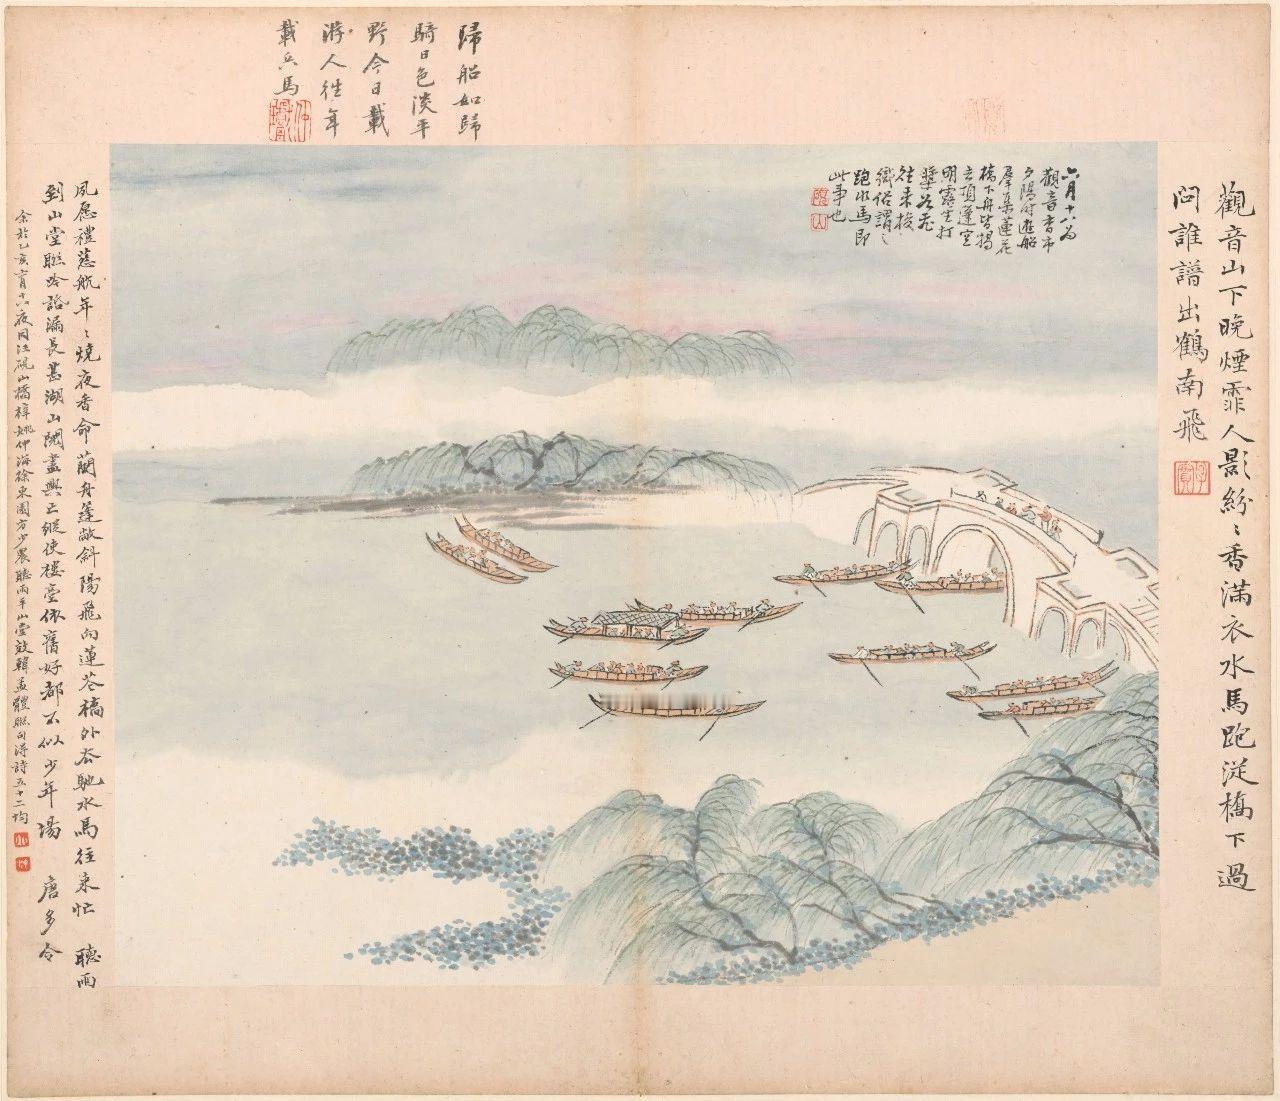 歸船如歸
騎日色淡平
野今日載
游人往年
載兵馬
六月十八為
觀音香市
夕陽時遊船
羣集蓮花
橋下舟皆揭
去頂蓬空
明露坐打
槳若飛
往來梭
織俗謂之
跑水馬即
此事也
觀音山下晚煙霏人影紛〻香滿衣水馬跑從橋下過
問誰譜出鶴南飛
夙愿禮慈航年〻燒夜香命蘭舟蓬敞斜陽飛向蓮花橋外去馳水馬往來忙 聽雨
到山堂聯吟詒漏長甚湖山閱盡興亡縱使樓臺依舊好都不似少年場 唐多令
余於乙亥六月十八夜同汪硯山橘樟姚仲海徐東園方少農聽雨平山堂效韓孟體聯句得詩五十二均